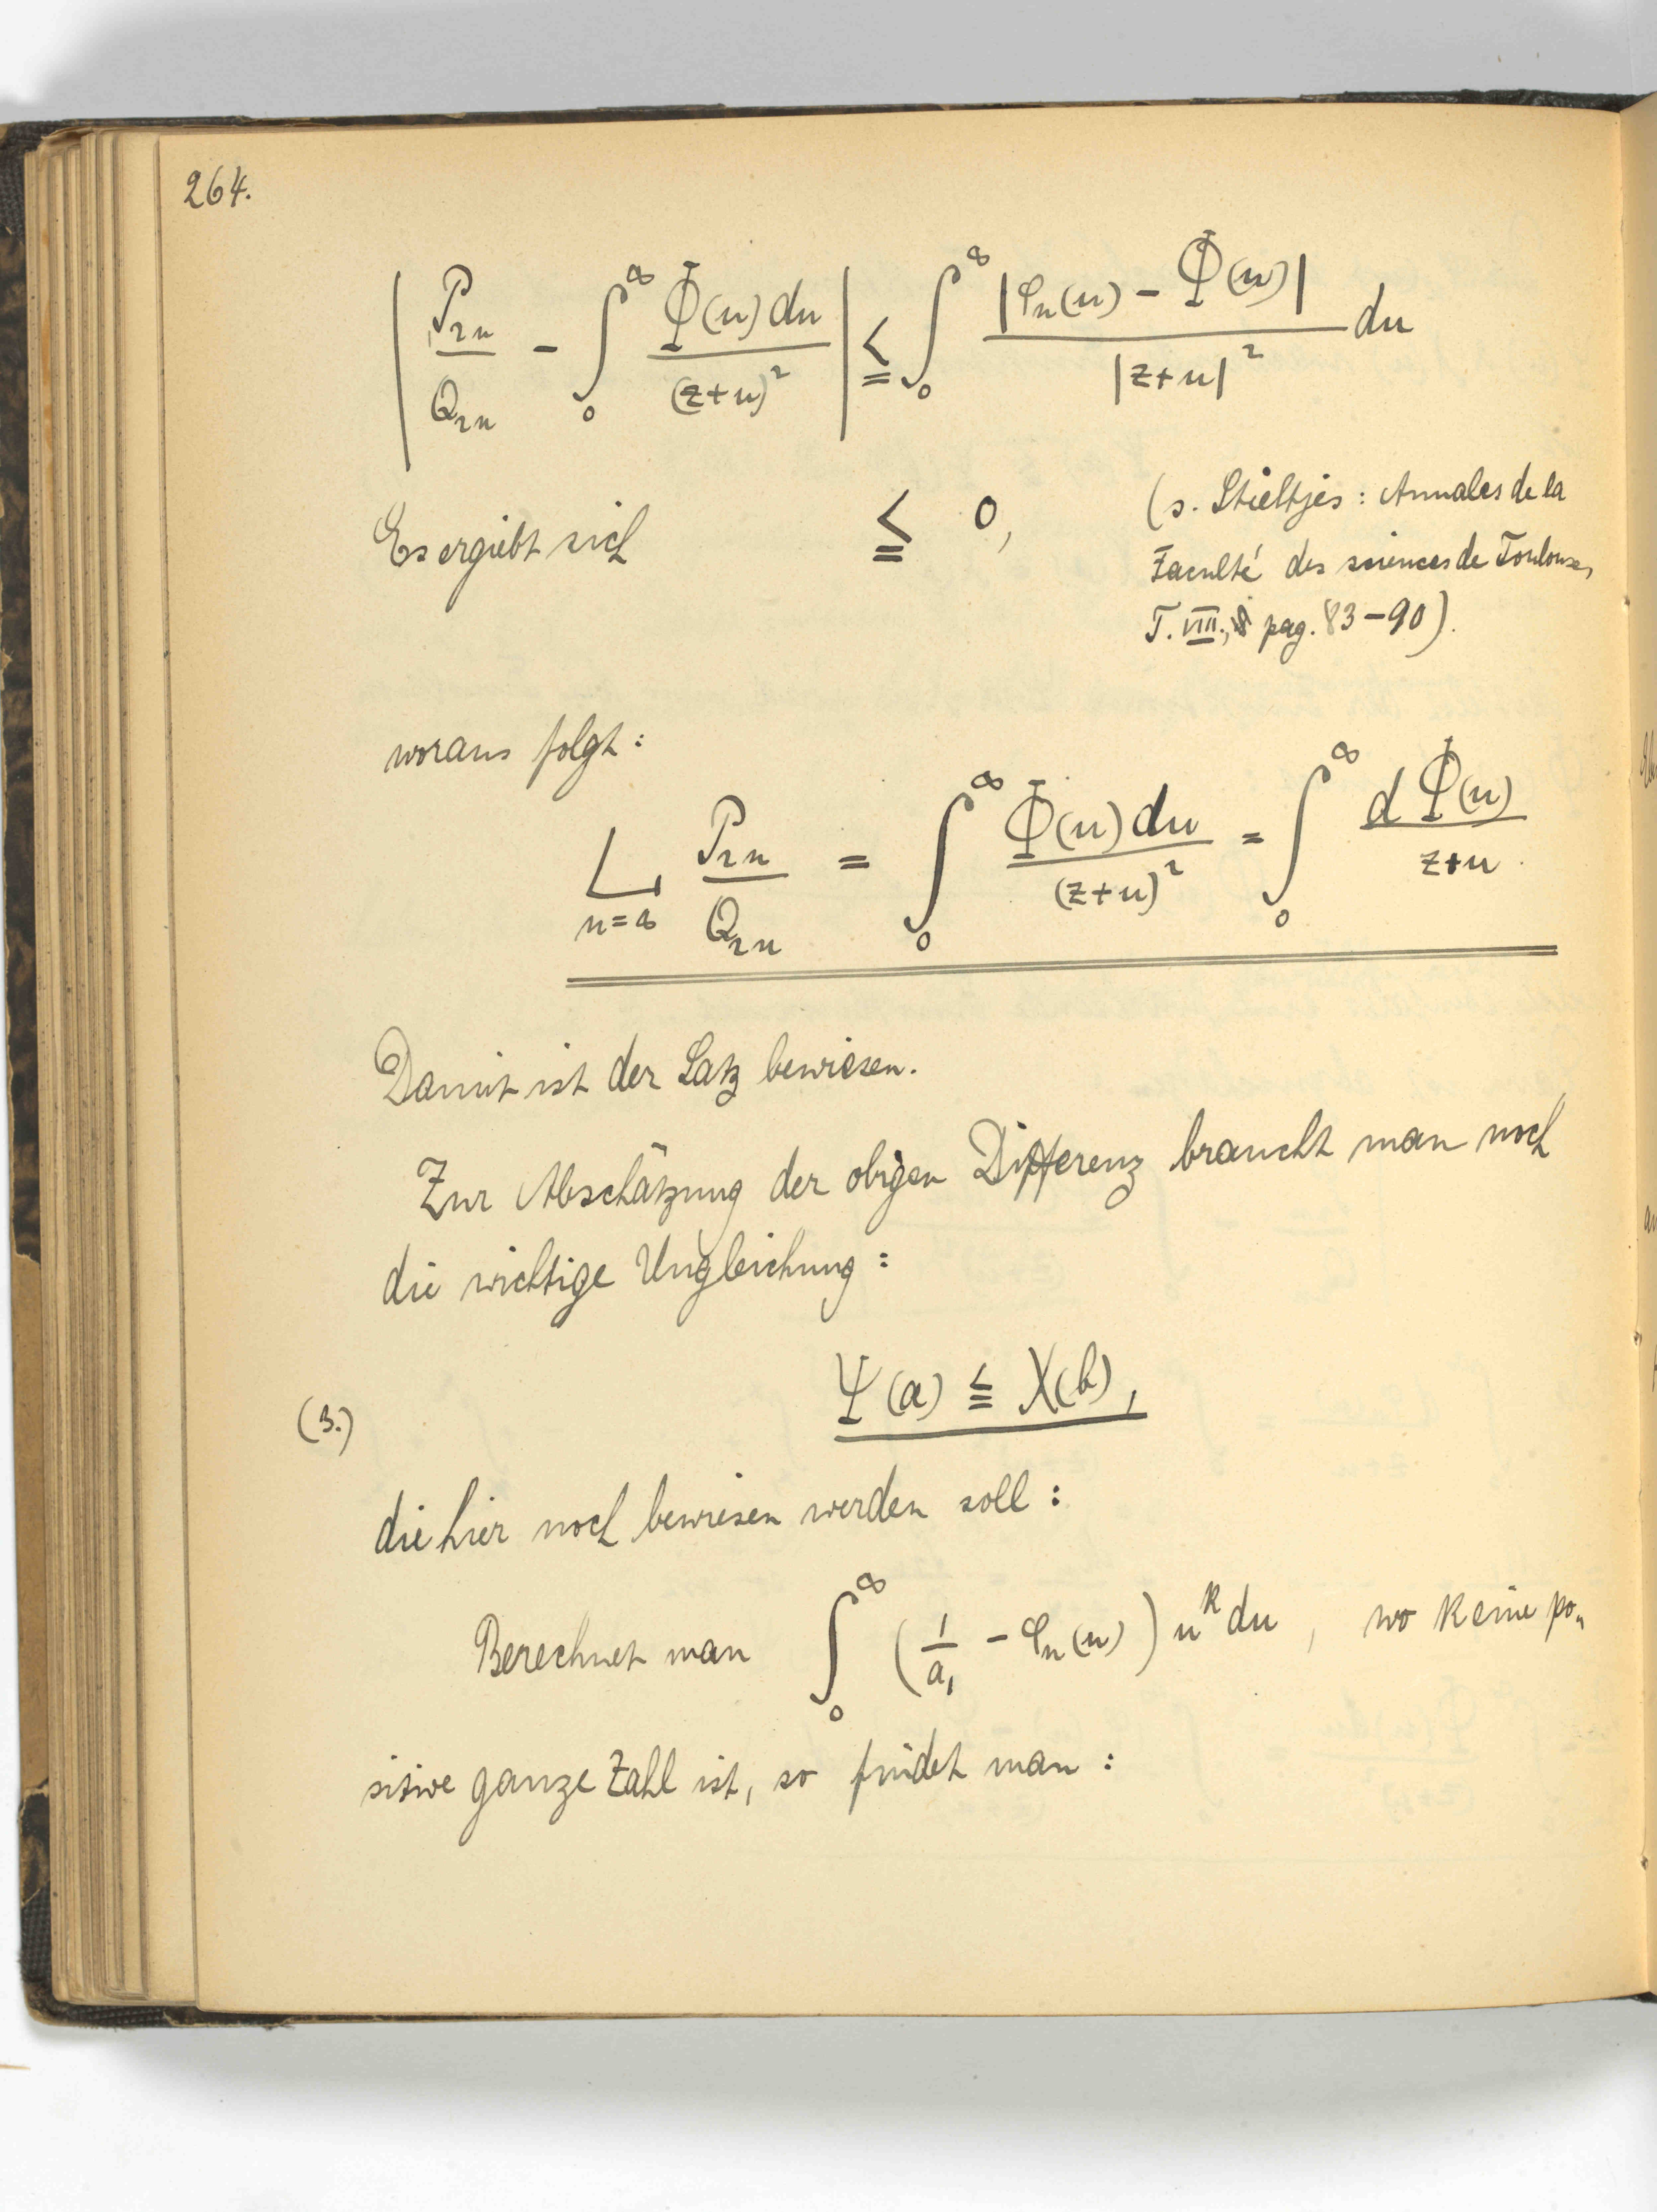 264.
| P₂ₙ/Q₂ₙ − ∫₀^∞ Φ(u)du/(z+u)² | ≦ ∫₀^∞ |φₙ(u) − Φ(u)|/|z+u|² du
Es ergiebt sich ≦ 0, (s. Stieltjes: Annales de la
Faculté des sciences de Toulouse,
T. VIII., pag. 83–90).
woraus folgt:
L_{n=∞} P₂ₙ/Q₂ₙ = ∫₀^∞ Φ(u)du/(z+u)² = ∫₀^∞ dΦ(u)/(z+u).
Damit ist der Satz bewiesen.
Zur Abschätzung der obigen Differenz braucht man noch
die wichtige Ungleichung:
(3.) Ψ(a) ≦ X(b),
die hier noch bewiesen werden soll:
Berechnet man ∫₀^∞ (1/a₁ − φₙ(u)) u^k du, wo k eine po„
sitive ganze Zahl ist, so findet man: